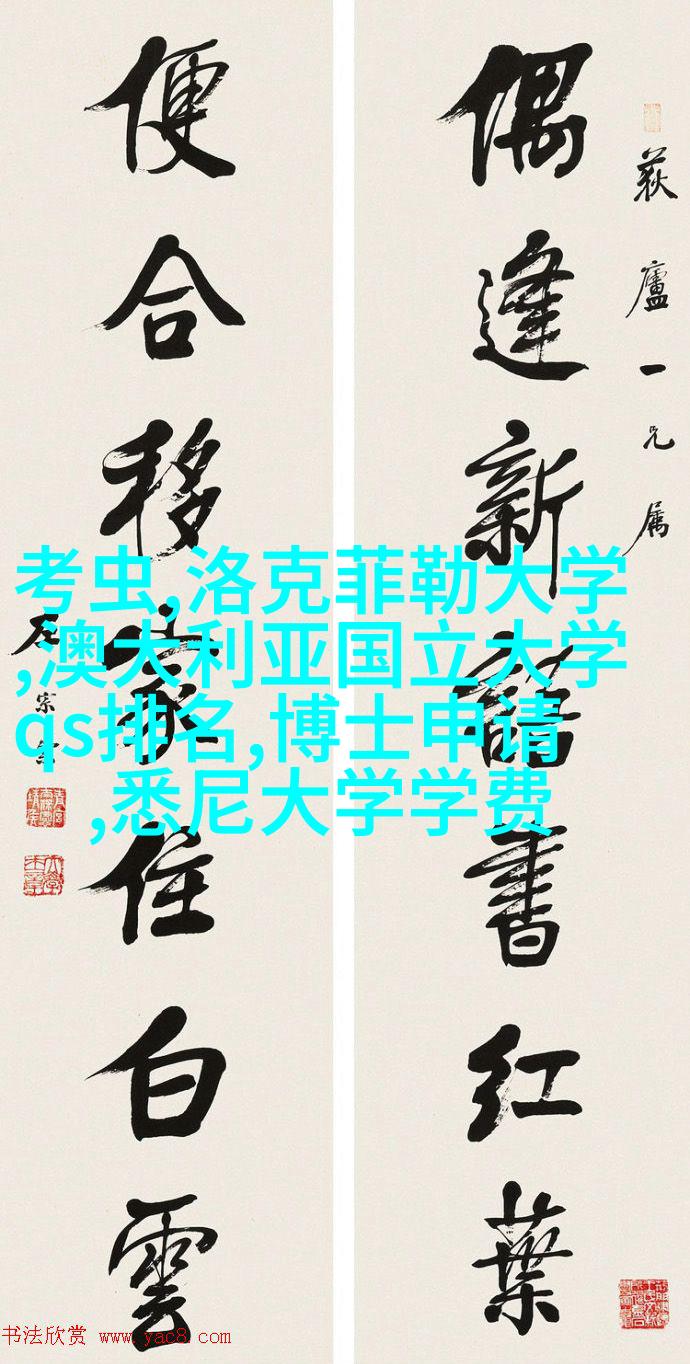 荻廬一兄属
偶逢新語書紅葉
便合移家住白雲
左宗棠
考虫,洛克菲勒大学
,澳大利亚国立大学
qs排名,博士申请
,悉尼大学学费
书法欣赏 www.yac8.com